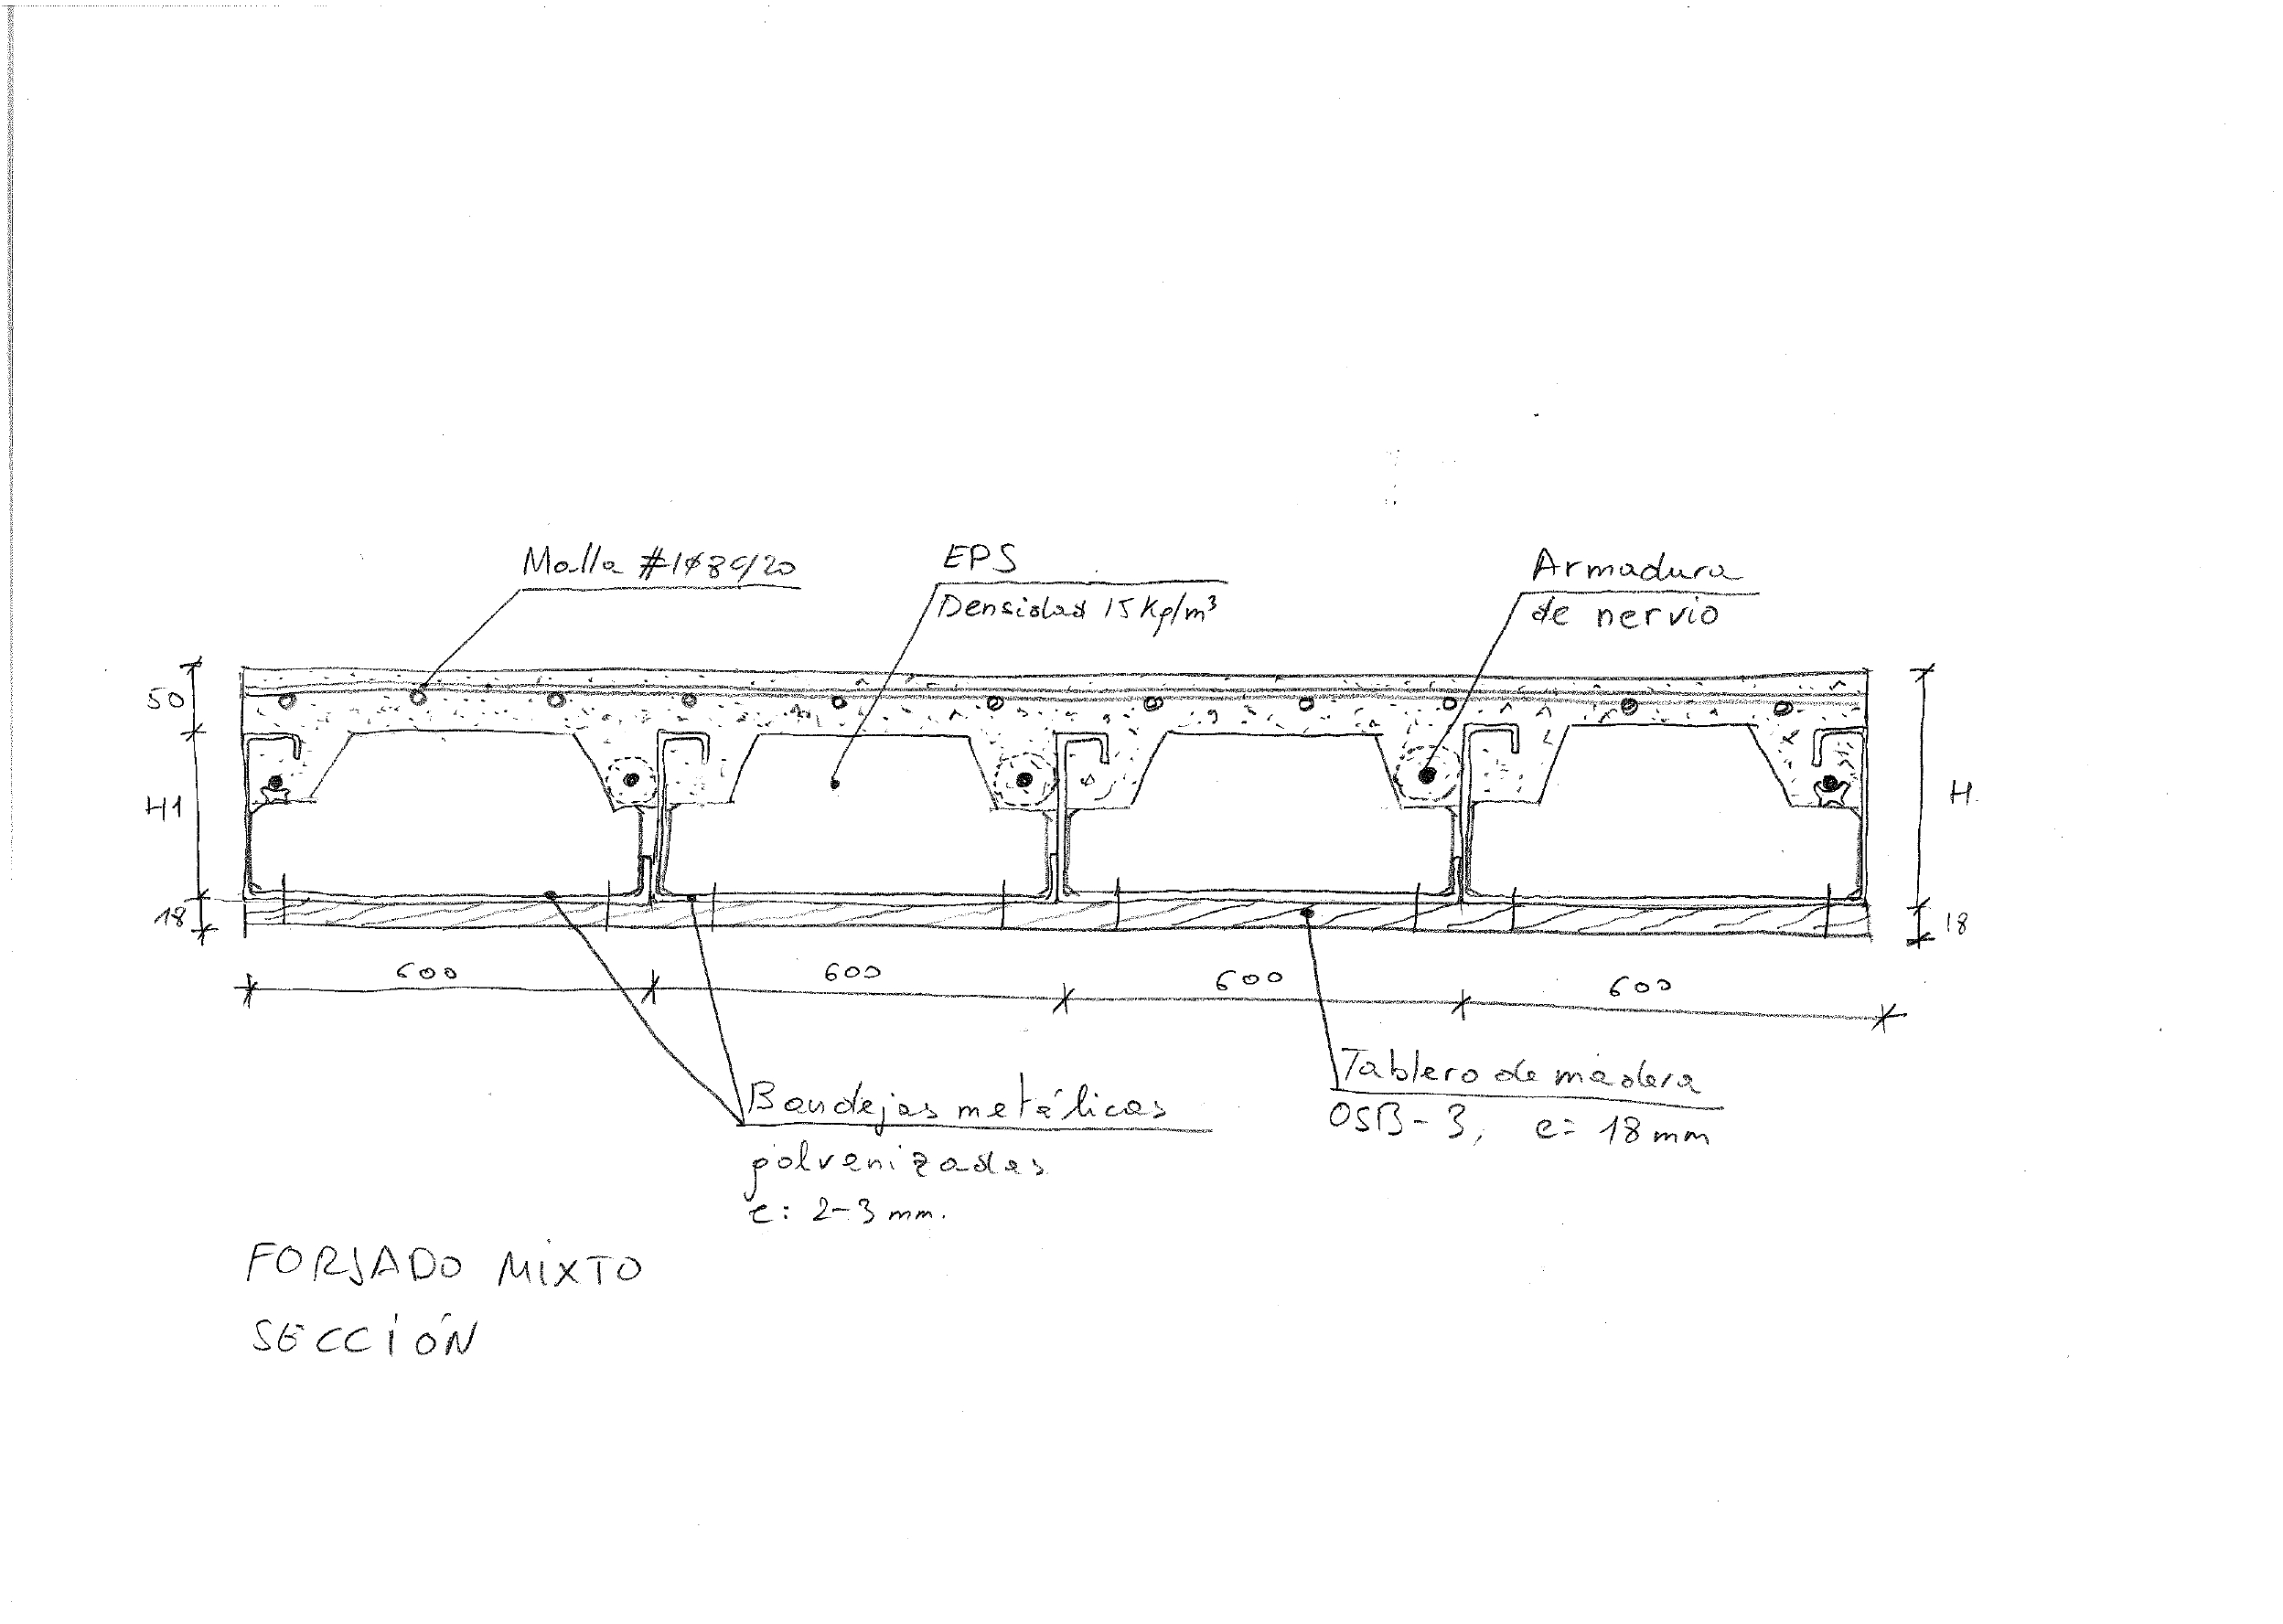 Malla #1ø8c/20
EPS
Densidad 15 Kg/m³
Armadura
de nervio
50
H1
18
H
18
600
600
600
600
Bandejas metálicas
galvanizadas
e: 2-3 mm.
Tablero de madera
OSB-3, e= 18 mm
FORJADO MIXTO
SECCIÓN